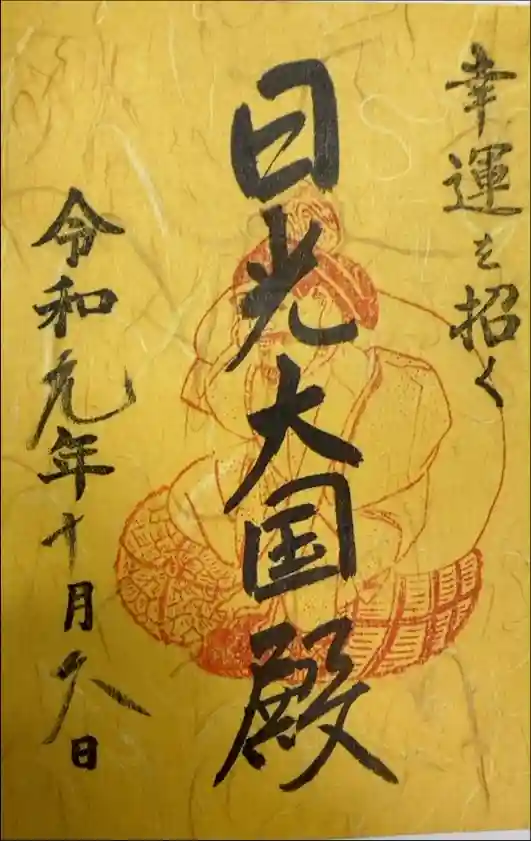 幸運を招く
日光大国殿
令和元年十月八日